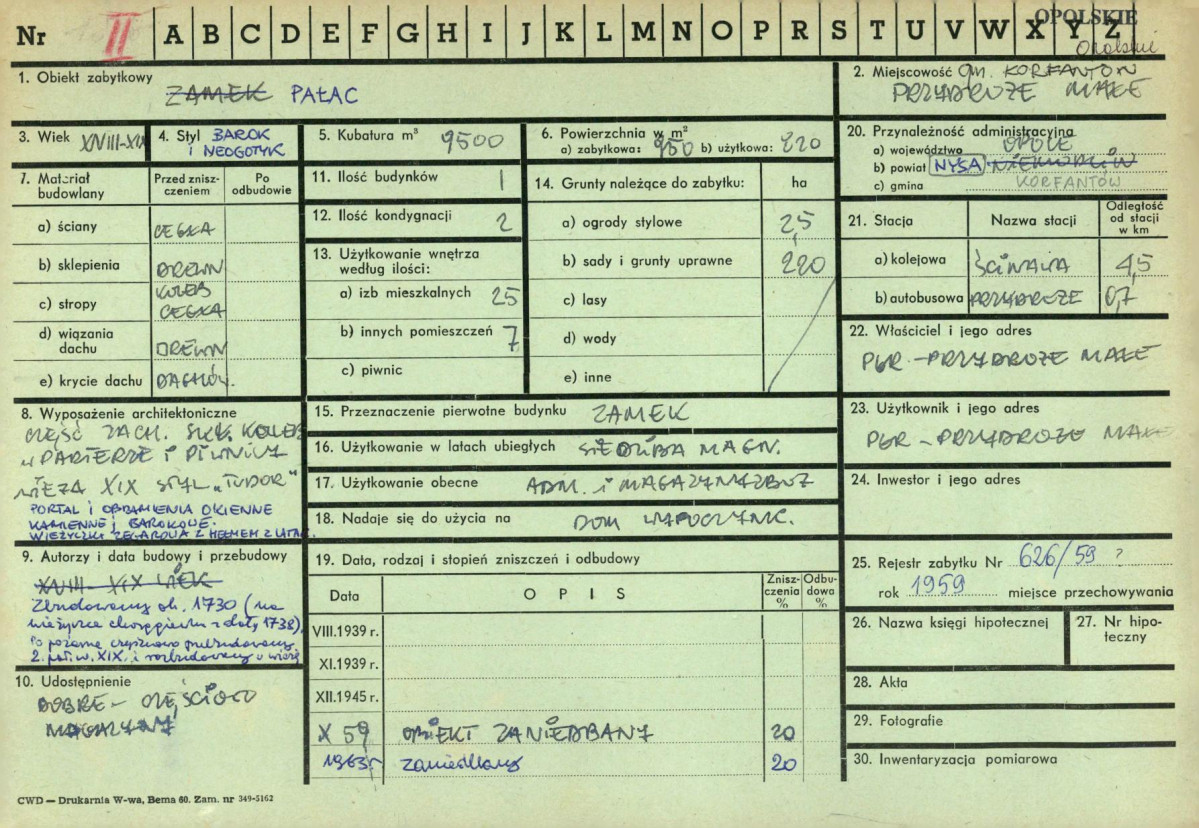 Nr II A B C D E F G H I J K L M N O P R S T U V W X Y Z
OPOLSKIE
1. Obiekt zabytkowy
ZAMEK PAŁAC
2. Miejscowość gm. KORFANTÓW
PRZYDROŻE MAŁE
3. Wiek XVIII-XIX
4. Styl BAROK
i NEOGOTYK
5. Kubatura m³ 9500
6. Powierzchnia w m²
a) zabytkowa: 950 b) użytkowa: 220
20. Przynależność administracyjna
a) województwo OPOLE
b) powiat NYSA NIEMODLIN
c) gmina KORFANTÓW
7. Materiał budowlany
Przed zniszczeniem
Po odbudowie
a) ściany CEGŁA
b) sklepienia DREWN
c) stropy KOLEB CEGŁA
d) wiązania dachu DREWN
e) krycie dachu DACHÓW.
11. Ilość budynków 1
12. Ilość kondygnacji 2
13. Użytkowanie wnętrza według ilości:
a) izb mieszkalnych 25
b) innych pomieszczeń 7
c) piwnic
14. Grunty należące do zabytku: ha
a) ogrody stylowe 2,5
b) sady i grunty uprawne 220
c) lasy
d) wody
e) inne
21. Stacja
Nazwa stacji
Odległość od stacji w km
a) kolejowa ŚCINAWA 4,5
b) autobusowa PRZYDROŻE 0,7
22. Właściciel i jego adres
PGR - PRZYDROŻE MAŁE
8. Wyposażenie architektoniczne
CZĘŚĆ ZACH. SKL. KOLEB
w PARTERZE i PIWNICY
WIEŻA XIX STYL „TUDOR"
PORTAL i OBRAMIENIA OKIENNE
KAMIENNE, BAROKOWE.
WIEŻYCZKA ZEGAROWA Z HEŁMEM Z LATAR.
15. Przeznaczenie pierwotne budynku ZAMEK
16. Użytkowanie w latach ubiegłych SIEDZIBA MAGN.
17. Użytkowanie obecne ADM. i MAGAZYN ZBOŻ
18. Nadaje się do użycia na DOM WYPOCZYNK.
23. Użytkownik i jego adres
PGR - PRZYDROŻE MAŁE
24. Inwestor i jego adres
9. Autorzy i data budowy i przebudowy
XVIII - XIX WIEK
Zbudowany ok. 1730 (na
wieżyczce chorągiewka z datą 1738).
Po pożarze częściowo przebudowany
2. poł. w. XIX. i rozbudowany o wieżę
19. Data, rodzaj i stopień zniszczeń i odbudowy
Data
OPIS
Zniszczenia %
Odbudowa %
VIII.1939 r.
XI.1939 r.
XII.1945 r.
X 59 OBIEKT ZANIEDBANY 20
1963r zaniedbany 20
25. Rejestr zabytku Nr 626/59 ?
rok 1959 miejsce przechowywania
26. Nazwa księgi hipotecznej
27. Nr hipoteczny
10. Udostępnienie
DOBRE - CZĘŚCIOWO
MAGAZYNY
28. Akta
29. Fotografie
30. Inwentaryzacja pomiarowa
CWD — Drukarnia W-wa, Bema 60. Zam. nr 349-5162